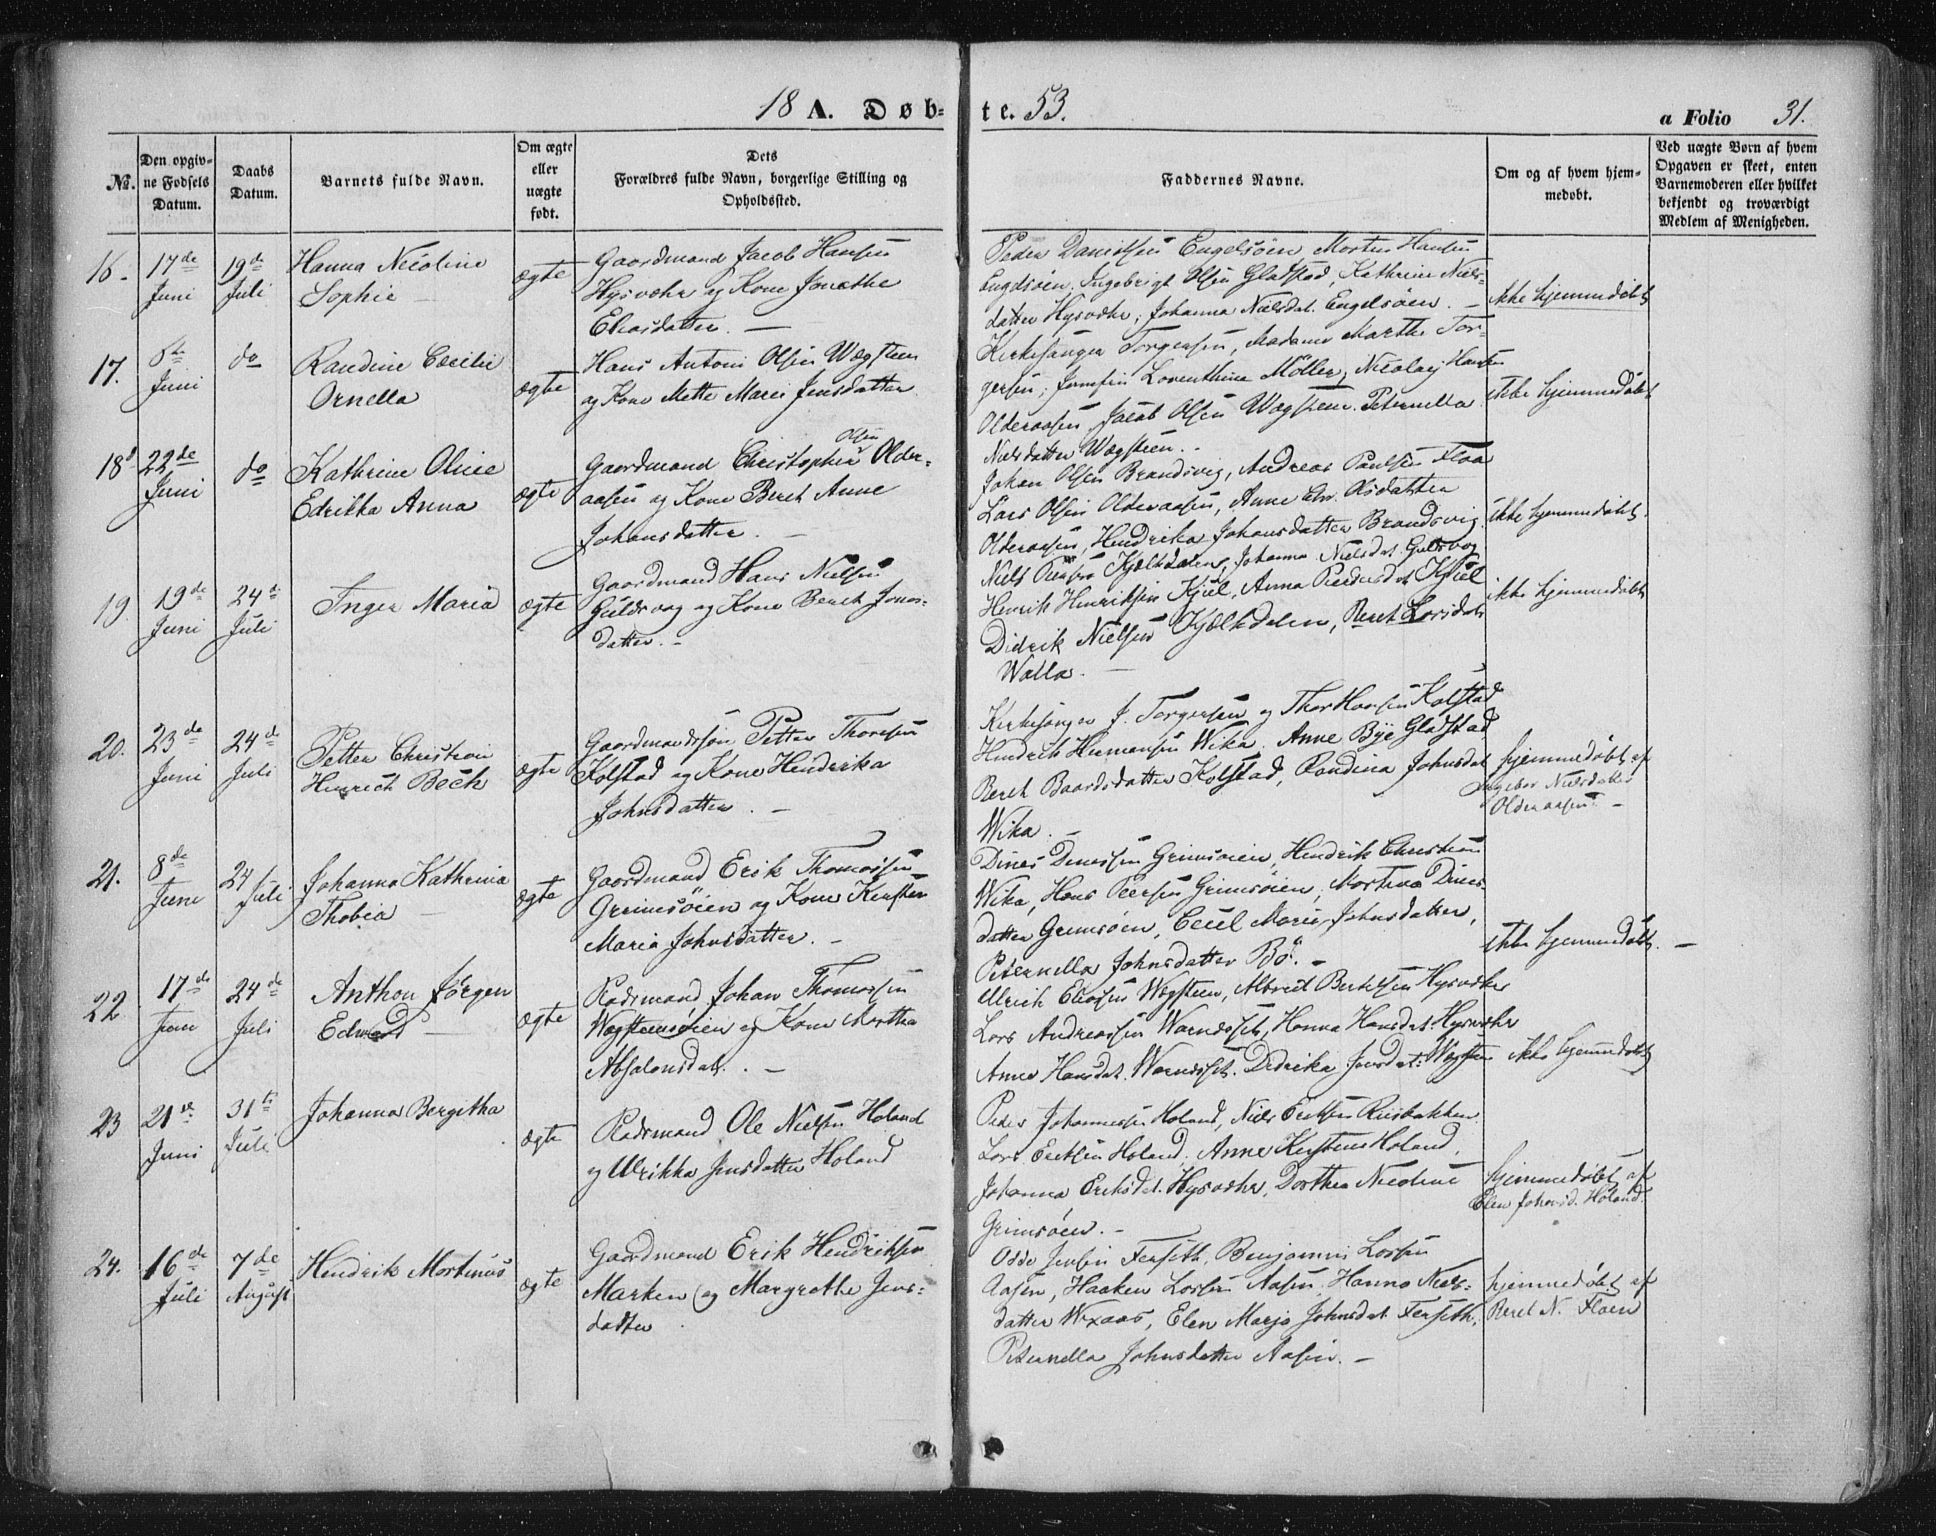 18 A. Døb- te. 53.
a Folio 31.
No.
Den opgiv-
ne Fødsels
Datum.
Daabs
Datum.
Barnets fulde Navn.
Om ægte
eller
uægte
født.
Dets
Forældres fulde Navn, borgerlige Stilling og
Opholdssted.
Faddernes Navne.
Om og af hvem hjem-
medøbt.
Ved uægte Børn af hvem
Opgaven er skeet, enten
Barnemoderen eller hvilket
bekjendt og troværdigt
Medlem af Menigheden.
16.
17de
Juni
19de
Juli
Hanna Nicoline
Sophie
ægte
Gaardmand Jacob Hansen
Hysvær og Kone Jonethe
Eliasdatter.
Peder Danielsen Engelsöen, Morten Hansen
Engelsöen, Ingebrigt Olsen Gladstad, Kathrine Niels-
datter Hysvær, Johanna Nielsdat. Engelsöen.
ikke hjemmedöbt
17.
Juni
do
Randine Cecilie
Ornella
ægte
Hans Antoni Olsen Wægsteen
og Kone Mette Marie Jensdatter.
Kirkesanger Torgersen, Madame Marthe Tor-
gersen, Jomfru Loventhina Möller, Nicolaj Hansen
Olderaasen, Jacob Olsen Wægsteen. Peternella
Nielsdatter Wægsteen.
ikke hjemmedöbt
18.
22de
Juni
do
Kathrine Oline
Edrikka Anna
ægte
Gaardmand Christopher Olsen Older-
aasen og Kone Beret Anne
Johansdatter.
Johan Olsen Brandsvig, Andreas Paulsen Floa
Lars Olsen Olderaasen, Anne Chr. Olsdatter
Olderaasen, Hendrika Johansdatter Brandsvig.
ikke hjemmedöbt.
19.
19de
Juni
24de
Juli
Inger Maria
ægte
Gaardmand Hans Nielsen
Guldsvog og Kone Beret Jonas-
datter.
Niels Peersen Kjelkdalen, Johanna Nielsdat. Guldsvog.
Henrik Henriksen Kjul, Anna Pedersdat. Kjul
Didrik Nielsen Kjelkdalen, Beret Larsdat.
Walla.
ikke hjemmedöbt
20.
23de
Juni
24de
Juli
Petter Christian
Henrich Bech
ægte
Gaardmandssön Petter Thoresen
Kolstad og Kone Hendrika
Johnsdatter.
Kirkesanger J. Torgersen og Thor Hansen Kolstad
Hendrik Hermansen Wika. Anne Bye Gladstad
Beret Baardsdatter Kolstad, Randina Johnsdat.
Wika.
hjemmedöbt af
Ingebor Nielsdatter
Olderaasen.
21.
8de
Juni
24
Juli
Johanna Kathrina
Thobia
ægte
Gaardmand Erik Thomassen
Grimsöien og Kone Kirsten
Maria Johnsdatter.
Dines Dinessen Grimsöien, Hendrik Christian
Wika, Hans Peersen Grimsöien, Martina Dines-
datter Grimsöen, Cecil Marie Johnsdatter,
Peternella Johnsdatter Bö.
ikke hjemmedöbt.
22
17de
Juni
24de
Juli
Anthon Jörgen
Edward
ægte
Radsmand Johan Thomassen
Wægsteensöien og Kone Martha
Absalonsdat.
Ulrich Eliasen Wægsteen, Albred Bertelsen Hysvær
Lars Andreassen Warnesset, Hanna Hansdat. Hysvær
Anne Hansdat. Warnesset. Didrika Jensdat. Wægsteen
ikke hjemmedöbt
23
21de
Juni
31te
Juli
Johanna Bergitha
ægte
Radsmand Ole Nielsen Holand
og Ulrikka Jensdatter Holand
Peder Johannessen Holand, Niels Eriksen Rusbakken
Lars Eriksen Holand. Anne Kirstine Holand,
Johanna Eriksdat. Hysvær, Dorthea Nicoline
Grimsöen.
hjemmedöbt af
Elen Johansd. Holand.
24.
16de
Juli
7de
August
Hendrik Martinus
ægte
Gaardmand Erik Hendriksen
Marken og Margrethe Jens-
datter
Odde Jensen Ferseth, Benjamin Larsen
Aasen, Haaken Larsen Aasen, Hanna Niels-
datter Wexaas, Elen Marja Johnsdat. Ferseth,
Peternella Johnsdatter Aasen.
hjemmedöbt af
Beret N. Floen